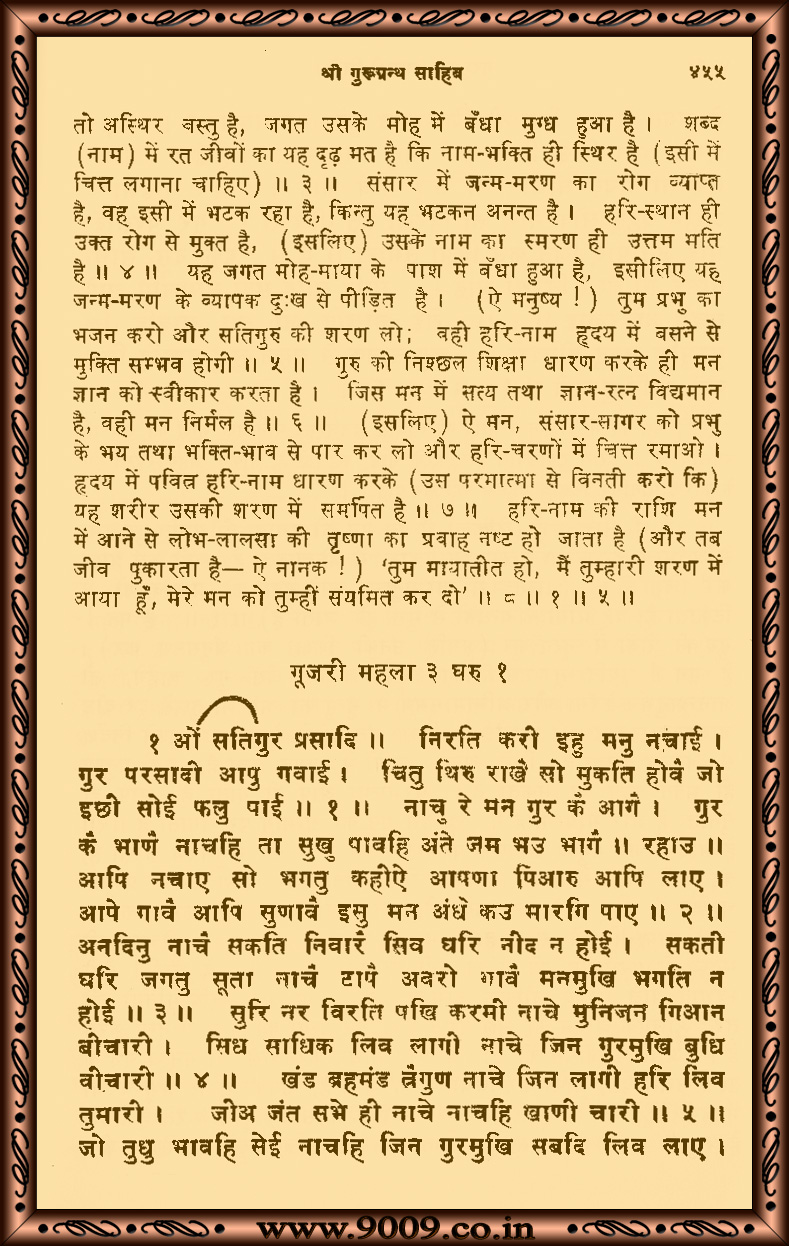 श्री गुरूग्रन्थ साहिब ४५५
तो अस्थिर वस्तु है, जगत उसके मोह में बँधा मुग्ध हुआ है । शब्द
(नाम) में रत जीवों का यह दृढ़ मत है कि नाम-भक्ति ही स्थिर है (इसी में
चित्त लगाना चाहिए) ॥ ३ ॥ संसार में जन्म-मरण का रोग व्याप्त
है, वह इसी में भटक रहा है, किन्तु यह भटकन अनन्त है । हरि-स्थान ही
उक्त रोग से मुक्त है, (इसलिए) उसके नाम का स्मरण ही उत्तम मति
है ॥ ४ ॥ यह जगत मोह-माया के पाश में बँधा हुआ है, इसीलिए यह
जन्म-मरण के व्यापक दुःख से पीड़ित है । (ऐ मनुष्य !) तुम प्रभु का
भजन करो और सतिगुरु की शरण लो; वही हरि-नाम हृदय में बसने से
मुक्ति सम्भव होगी ॥ ५ ॥ गुरु की निश्छल शिक्षा धारण करके ही मन
ज्ञान को स्वीकार करता है । जिस मन में सत्य तथा ज्ञान-रत्न विद्यमान
है, वही मन निर्मल है ॥ ६ ॥ (इसलिए) ऐ मन, संसार-सागर को प्रभु
के भय तथा भक्ति-भाव से पार कर लो और हरि-चरणों में चित्त रमाओ ।
हृदय में पवित्र हरि-नाम धारण करके (उस परमात्मा से विनती करो कि)
यह शरीर उसकी शरण में समर्पित है ॥ ७ ॥ हरि-नाम की राशि मन
में आने से लोभ-लालसा की तृष्णा का प्रवाह नष्ट हो जाता है (और तब
जीव पुकारता है— ऐ नानक !) ‘तुम मायातीत हो, मैं तुम्हारी शरण में
आया हूँ, मेरे मन को तुम्हीं संयमित कर दो’ ॥ ८ ॥ १ ॥ ५ ॥
गूजरी महला ३ घरु १
१ ओं सतिगुर प्रसादि ॥ निरति करी इहु मनु नचाई ।
गुर परसादी आपु गवाई । चितु थिरु राखै सो मुकति होवै जो
इछी सोई फलु पाई ॥ १ ॥ नाचु रे मन गुर कै आगै । गुर
कै भाणै नाचहि ता सुखु पावहि अंते जम भउ भागै ॥ रहाउ ॥
आपि नचाए सो भगतु कहीऐ आपणा पिआरु आपि लाए ।
आपे गावै आपि सुणावै इसु मन अंधे कउ मारगि पाए ॥ २ ॥
अनदिनु नाचै सकति निवारै सिव घरि नीद न होई । सकती
घरि जगतु सूता नाचै टापै अवरो गावै मनमुखि भगति न
होई ॥ ३ ॥ सुरि नर विरति पखि करमी नाचे मुनिजन गिआन
बीचारी । सिध साधिक लिव लागी नाचे जिन गुरमुखि बुधि
वीचारी ॥ ४ ॥ खंड ब्रहमंड त्रैगुण नाचे जिन लागी हरि लिव
तुमारी । जीअ जंत सभे ही नाचे नाचहि खाणी चारी ॥ ५ ॥
जो तुधु भावहि सेई नाचहि जिन गुरमुखि सबदि लिव लाए ।
www.9009.co.in